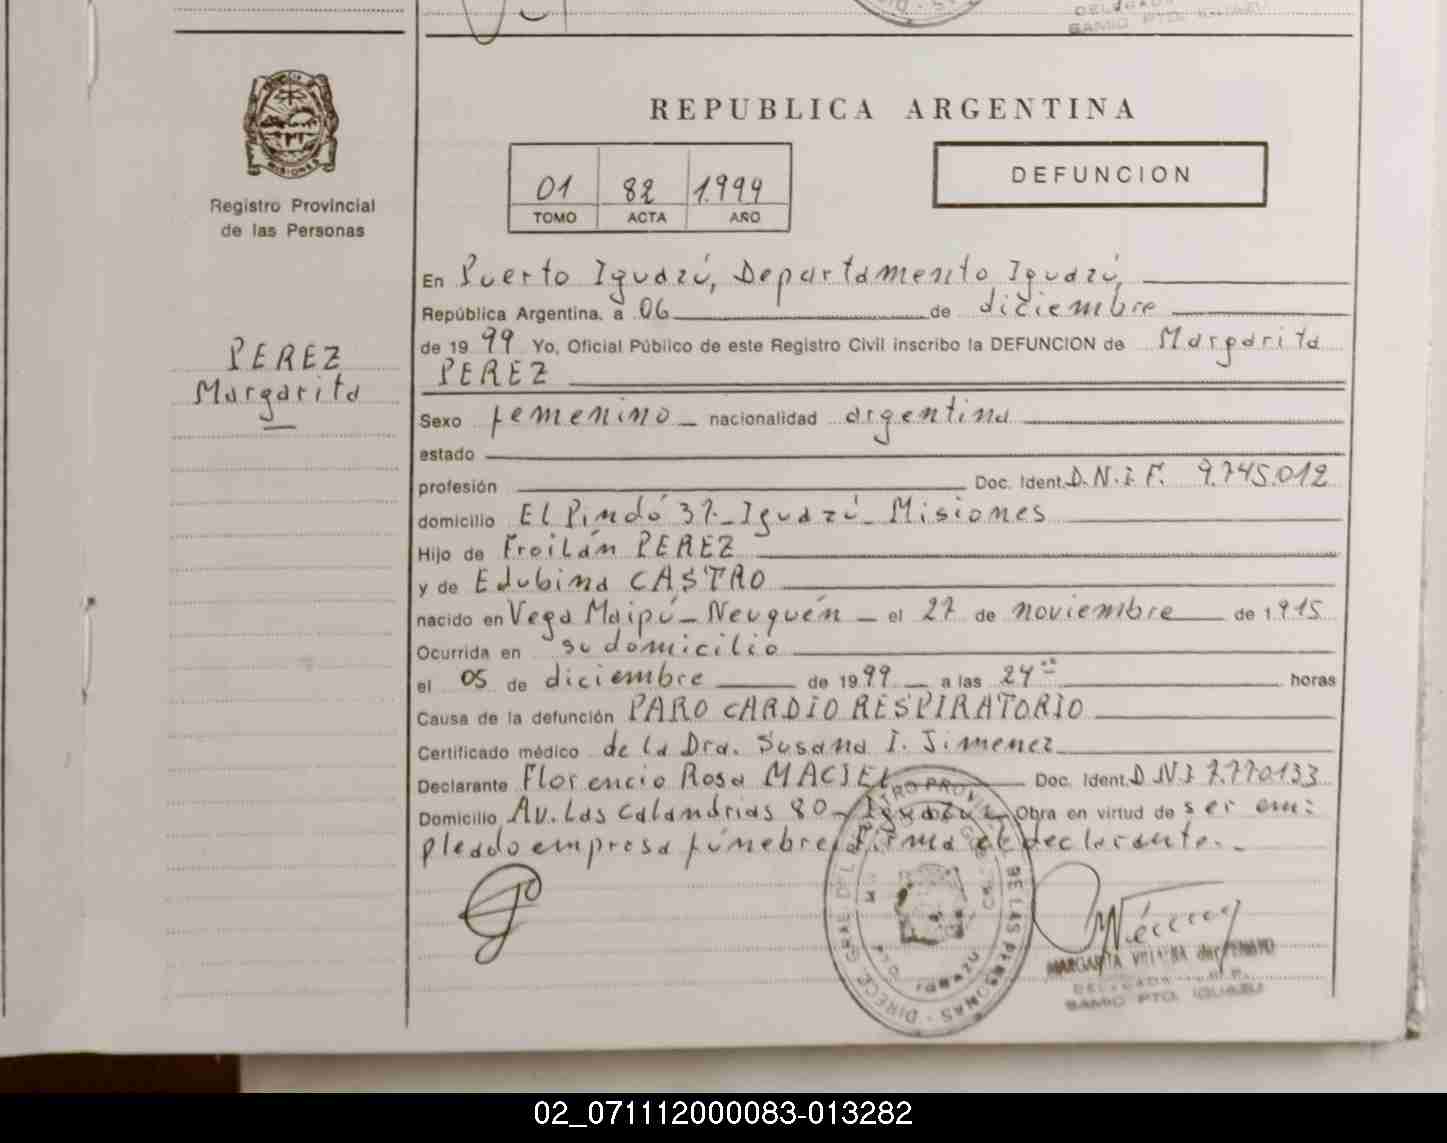 REPUBLICA ARGENTINA
DEFUNCION
01 82 1.999
TOMO ACTA AÑO
MISIONES
Registro Provincial
de las Personas
PEREZ
Margarita
En Puerto Iguazú, Departamento Iguazú,
República Argentina, a 06 de diciembre
de 1999 Yo, Oficial Público de este Registro Civil inscribo la DEFUNCION de Margarita
PEREZ
Sexo femenino nacionalidad argentina
estado
profesión Doc. Ident. D.N.I. F. 9.745.012
domicilio El Pindó 37 - Iguazú - Misiones
Hijo de Froilán PEREZ
y de Edubina CASTRO
nacido en Vega Maipú - Neuquén - el 27 de noviembre de 1915
Ocurrida en su domicilio
el 05 de diciembre de 1999 a las 24 horas
Causa de la defunción PARO CARDIO RESPIRATORIO
Certificado médico de la Dra. Susana I. Jimenez
Declarante Florencio Rosa MACIEL Doc. Ident. DNI 7.770.133
Domicilio Av. Las Calandrias 80 - Iguazú - Obra en virtud de ser em:
pleado empresa fúnebre. Firma el declarante. -
DE LAS PERSONAS
PTO. IGUAZU
MARGARITA
DELEGADA
PTO. IGUAZU
02_071112000083-013282